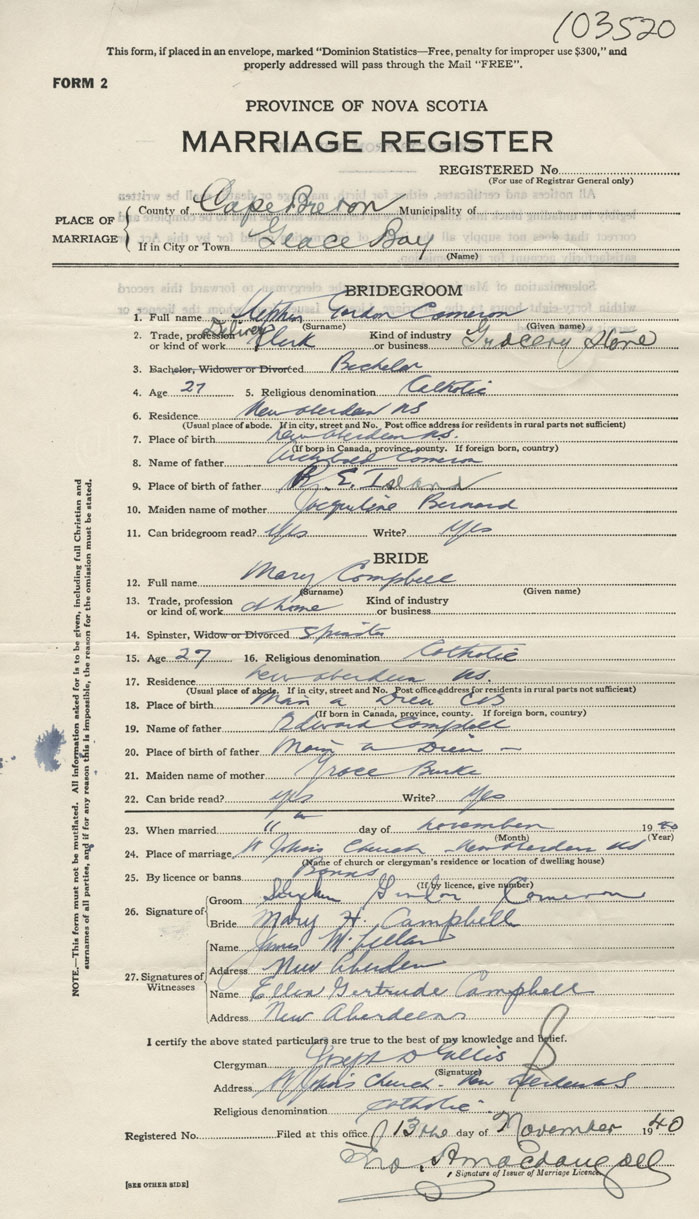 103520
This form, if placed in an envelope, marked "Dominion Statistics—Free, penalty for improper use $300," and
properly addressed will pass through the Mail "FREE".
FORM 2
PROVINCE OF NOVA SCOTIA
MARRIAGE REGISTER
REGISTERED No.
(For use of Registrar General only)
PLACE OF MARRIAGE
County of Cape Breton Municipality of
If in City or Town Glace Bay
(Name)
BRIDEGROOM
1. Full name Stephen Gordon Cameron
(Surname) (Given name)
2. Trade, profession or kind of work Delivery Clerk Kind of industry or business Grocery Store
3. Bachelor, Widower or Divorced Bachelor
4. Age 27 5. Religious denomination Catholic
6. Residence New Aberdeen NS
(Usual place of abode. If in city, street and No. Post office address for residents in rural parts not sufficient)
7. Place of birth New Aberdeen NS.
(If born in Canada, province, county. If foreign born, country)
8. Name of father Archibald Cameron
9. Place of birth of father P. E. Island
10. Maiden name of mother Jacqueline Bernard
11. Can bridegroom read? Yes Write? Yes
BRIDE
12. Full name Mary Campbell
(Surname) (Given name)
13. Trade, profession or kind of work at home Kind of industry or business
14. Spinster, Widow or Divorced Spinster
15. Age 27 16. Religious denomination Catholic
17. Residence New Aberdeen NS.
(Usual place of abode. If in city, street and No. Post office address for residents in rural parts not sufficient)
18. Place of birth Main a Drea CB
(If born in Canada, province, county. If foreign born, country)
19. Name of father Edward Campbell
20. Place of birth of father Main a Drein
21. Maiden name of mother Grace Burke
22. Can bride read? Yes Write? Yes
23. When married 11 day of November 1940
(Month) (Year)
24. Place of marriage St Johns Church - New Aberdeen NS
(Name of church or clergyman's residence or location of dwelling house)
25. By licence or banns Banns
(If by licence, give number)
26. Signature of
Groom Stephen Gordon Cameron
Bride Mary H. Campbell
27. Signatures of Witnesses
Name James McLellan
Address New Aberdeen
Name Ellen Gertrude Campbell
Address New Aberdeen
I certify the above stated particulars are true to the best of my knowledge and belief.
Clergyman Joseph D Gillis
(Signature)
Address St John's Church - New Aberdeen NS
Religious denomination Catholic
Registered No. Filed at this office 13th day of November 1940
Signature of Issuer of Marriage Licence
[SEE OTHER SIDE]
NOTE.—This form must not be mutilated. All information asked for is to be given, including full Christian and
surnames of all parties, and if for any reason this is impossible, the reason for the omission must be stated.